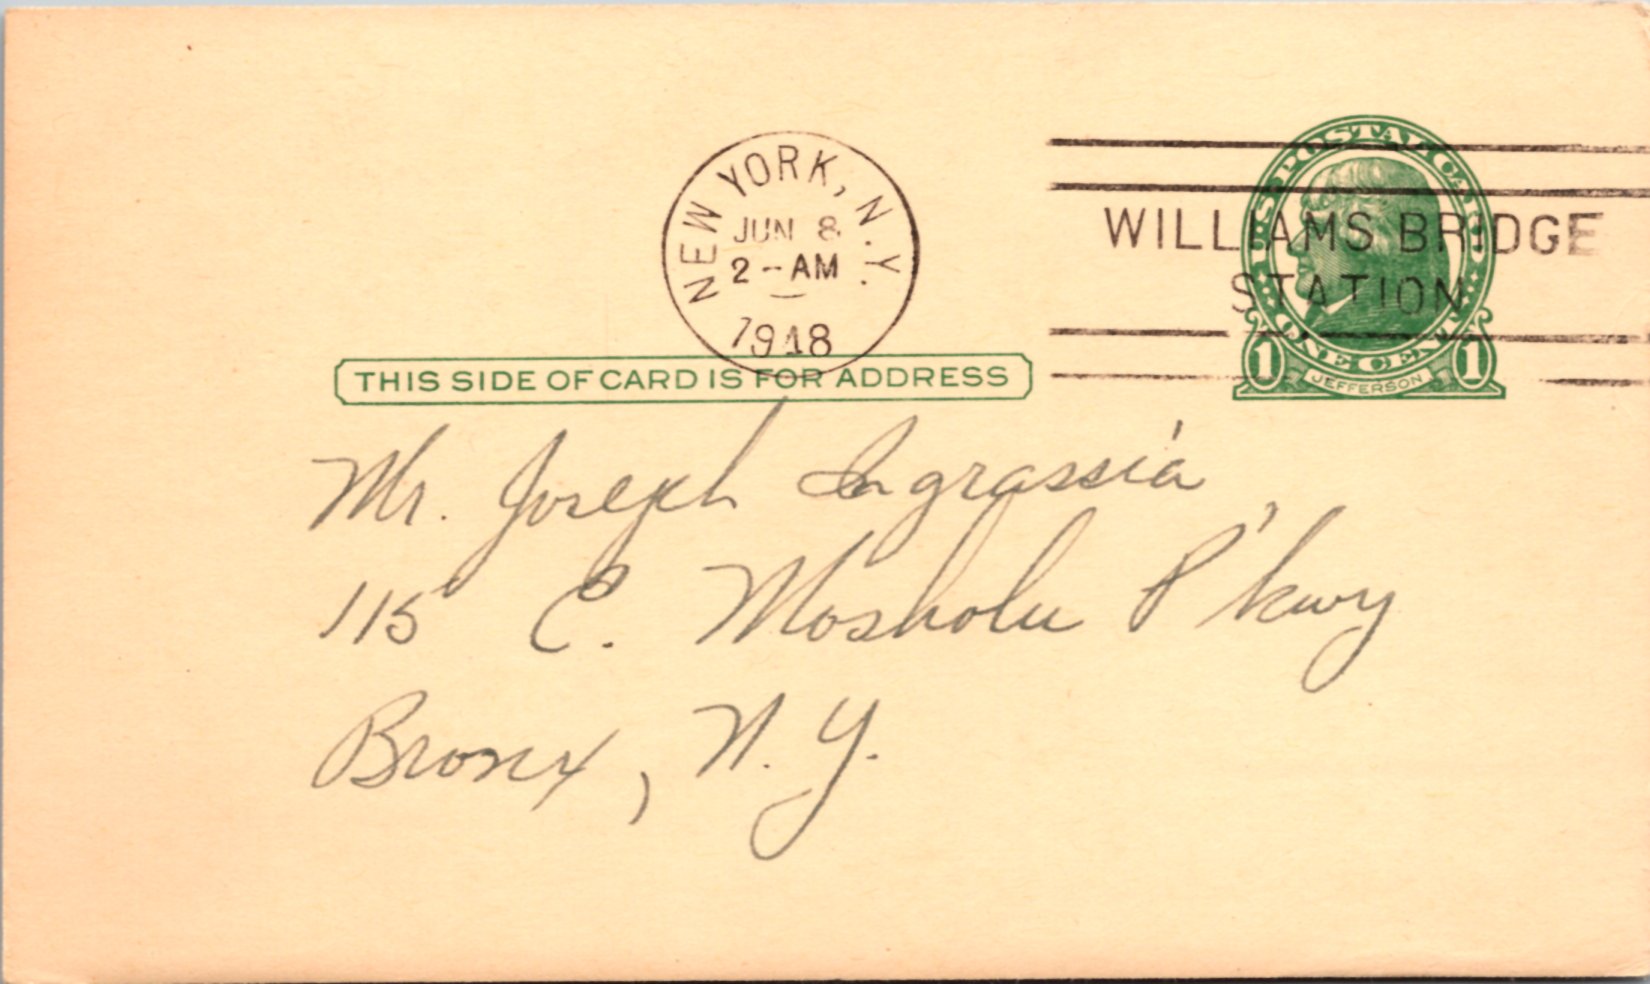 NEW YORK, N.Y.
JUN 8
2-AM
1948
WILLIAMS BRIDGE
STATION
U.S. POSTAL CARD
ONE CENT
1 JEFFERSON 1
THIS SIDE OF CARD IS FOR ADDRESS
Mr. Joseph Ingrassia
115 E. Mosholu P'kwy
Bronx, N.Y.